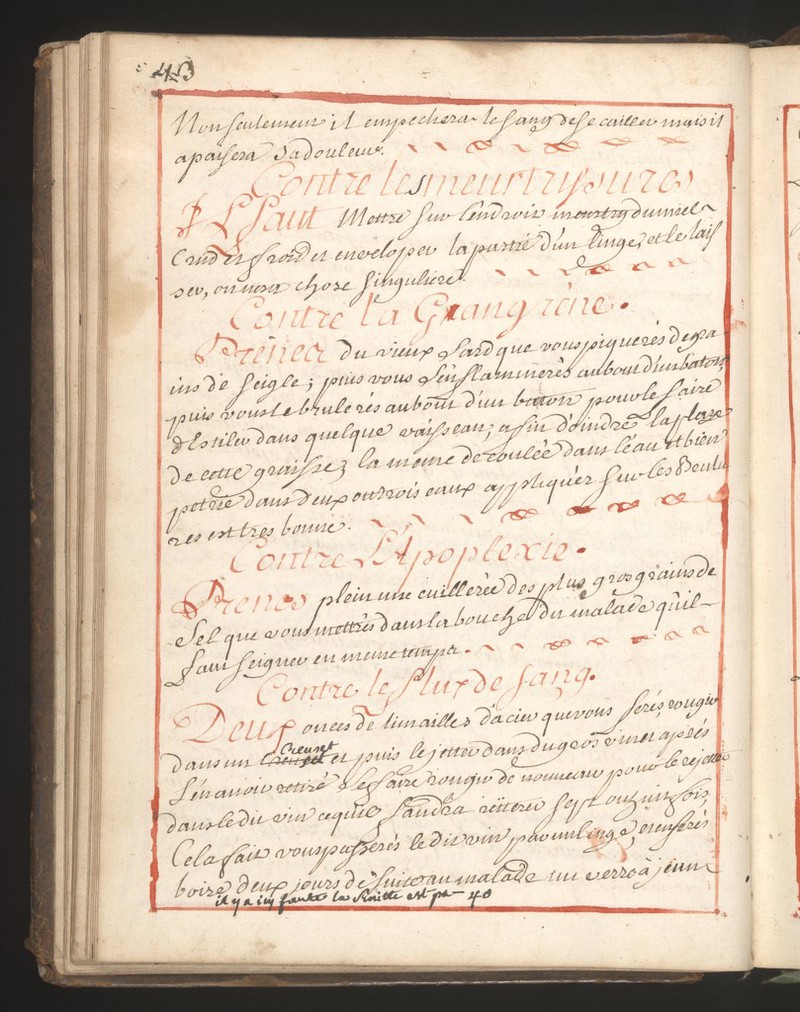 45
Non seulement il empechera le sang de se cailler mais il
apaisera sa douleur.
Contre les meurtrysures
Il faut Mettre sur l'endroit meurtry du miel
Crud et froid et enveloper la partie d'un linge, et le lais
ser, on verra chose singuliere.
Contre la Grangréne.
Prénez du vieux lard que vous piquerés de gra
ins de seigle; puis vous l'enflammerés au bout d'un baton,
puis vous le brulerés au bout d'un baton pour le faire
distiler dans quelque vaisseau, afin d'oindre la playe
de cette graisse, la meme decoulée dans l'eau et bien
petrie dans deux ou trois eaux appliquér sur les Brulu
res est tres bonne.
Contre l'Apoplexie.
Prenes plein une cuillerée des plus gros grains de
Sel que vous mettrés dans la bouche du malade qu'il
faut seigner en meme temps.
Contre le flux de sang.
Deux onces de limailles d'acier que vous ferés rougir
dans un Creuset et puis le jetter dans du gros vin et aprés
l'en avoir retiré le faire rougir de nouveau pour le rejetter
dans le dit vin ce qu'il faudra reiterer sept ou huit fois,
Cela fait vous passerés le dit vin par un linge, et en ferés
boire deux jours de suite au malade un verre à jeun
il y a icy faute la suitte est pa 40